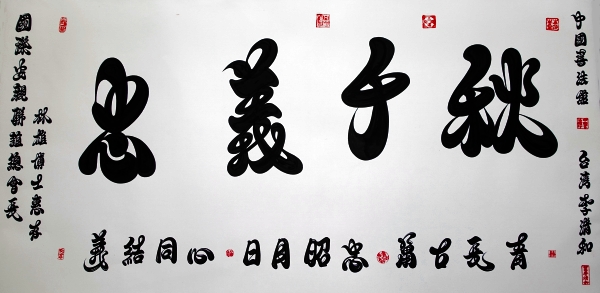 忠義千秋
義結同心 日月昭忠 萬古長青
中國書法
台湾李清和
國際宗親聯誼總會長
林雄博士惠存